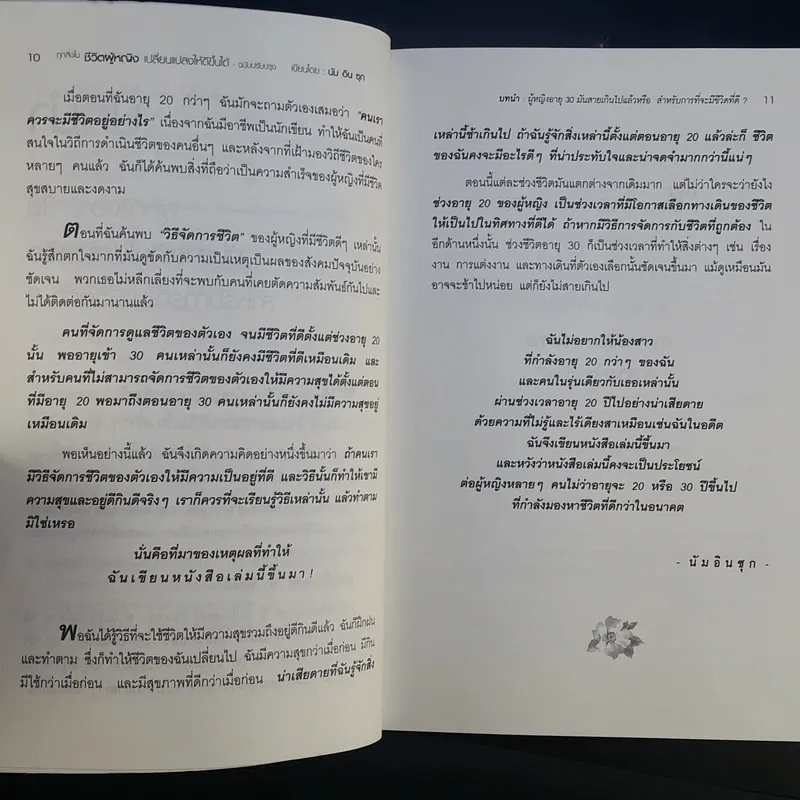 10 ทุกสิ่งใน ชีวิตผู้หญิง เปลี่ยนแปลงให้ดีขึ้นได้ - ฉบับปรับปรุง เขียนโดย : นัม อิน ซุก
เมื่อตอนที่ฉันอายุ 20 กว่าๆ ฉันมักจะถามตัวเองเสมอว่า "คนเรา
ควรจะมีชีวิตอยู่อย่างไร" เนื่องจากฉันมีอาชีพเป็นนักเขียน ทำให้ฉันเป็นคนที่
สนใจในวิถีการดำเนินชีวิตของคนอื่นๆ และหลังจากที่เฝ้ามองวิถีชีวิตของใคร
หลายๆ คนแล้ว ฉันก็ได้ค้นพบสิ่งที่ถือว่าเป็นความสำเร็จของผู้หญิงที่มีชีวิต
สุขสบายและงดงาม
ตอนที่ฉันค้นพบ "วิธีจัดการชีวิต" ของผู้หญิงที่มีชีวิตดีๆ เหล่านั้น
ฉันรู้สึกตกใจมากที่มันดูขัดกับความเป็นเหตุเป็นผลของสังคมปัจจุบันอย่าง
ชัดเจน พวกเธอไม่หลีกเลี่ยงที่จะพบกับคนที่เคยตัดความสัมพันธ์กันไปและ
ไม่ได้ติดต่อกันมานานแล้ว
คนที่จัดการดูแลชีวิตของตัวเอง จนมีชีวิตที่ดีตั้งแต่ช่วงอายุ 20
นั้น พออายุเข้า 30 คนเหล่านั้นก็ยังคงมีชีวิตที่ดีเหมือนเดิม และ
สำหรับคนที่ไม่สามารถจัดการชีวิตของตัวเองให้มีความสุขได้ตั้งแต่ตอน
ที่มีอายุ 20 พอมาถึงตอนอายุ 30 คนเหล่านั้นก็ยังคงไม่มีความสุขอยู่
เหมือนเดิม
พอเห็นอย่างนี้แล้ว ฉันจึงเกิดความคิดอย่างหนึ่งขึ้นมาว่า ถ้าคนเรา
มีวิธีจัดการชีวิตของตัวเองให้มีความเป็นอยู่ที่ดี และวิธีนั้นก็ทำให้เขามี
ความสุขและอยู่ดีกินดีจริงๆ เราก็ควรที่จะเรียนรู้วิธีเหล่านั้น แล้วทำตาม
มิใช่เหรอ
นั่นคือที่มาของเหตุผลที่ทำให้
ฉันเขียนหนังสือเล่มนี้ขึ้นมา!
พอฉันได้รู้วิธีที่จะใช้ชีวิตให้มีความสุขรวมถึงอยู่ดีกินดีแล้ว ฉันก็ฝึกฝน
และทำตาม ซึ่งก็ทำให้ชีวิตของฉันเปลี่ยนไป ฉันมีความสุขกว่าเมื่อก่อน มีกิน
มีใช้กว่าเมื่อก่อน และมีสุขภาพที่ดีกว่าเมื่อก่อน น่าเสียดายที่ฉันรู้จักสิ่ง
บทนำ : ผู้หญิงอายุ 30 มันสายเกินไปแล้วหรือ สำหรับการที่จะมีชีวิตที่ดี ? 11
เหล่านี้ช้าเกินไป ถ้าฉันรู้จักสิ่งเหล่านี้ตั้งแต่ตอนอายุ 20 แล้วล่ะก็ ชีวิต
ของฉันคงจะมีอะไรดีๆ ที่น่าประทับใจและน่าจดจำมากกว่านี้แน่ๆ
ตอนนี้แต่ละช่วงชีวิตมันแตกต่างจากเดิมมาก แต่ไม่ว่าใครจะว่ายังไง
ช่วงอายุ 20 ของผู้หญิง เป็นช่วงเวลาที่มีโอกาสเลือกทางเดินของชีวิต
ให้เป็นไปในทิศทางที่ดีได้ ถ้าหากมีวิธีการจัดการกับชีวิตที่ถูกต้อง ใน
อีกด้านหนึ่งนั้น ช่วงชีวิตอายุ 30 ก็เป็นช่วงเวลาที่ทำให้สิ่งต่างๆ เช่น เรื่อง
งาน การแต่งงาน และทางเดินที่ตัวเองเลือกนั้นชัดเจนขึ้นมา แม้ดูเหมือนมัน
อาจจะช้าไปหน่อย แต่ก็ยังไม่สายเกินไป
ฉันไม่อยากให้น้องสาว
ที่กำลังอายุ 20 กว่าๆ ของฉัน
และคนในรุ่นเดียวกับเธอเหล่านั้น
ผ่านช่วงเวลาอายุ 20 ปีไปอย่างน่าเสียดาย
ด้วยความที่ไม่รู้และไร้เดียงสาเหมือนเช่นฉันในอดีต
ฉันจึงเขียนหนังสือเล่มนี้ขึ้นมา
และหวังว่าหนังสือเล่มนี้คงจะเป็นประโยชน์
ต่อผู้หญิงหลายๆ คนไม่ว่าอายุจะ 20 หรือ 30 ปีขึ้นไป
ที่กำลังมองหาชีวิตที่ดีกว่าในอนาคต
- นัมอินซุก -